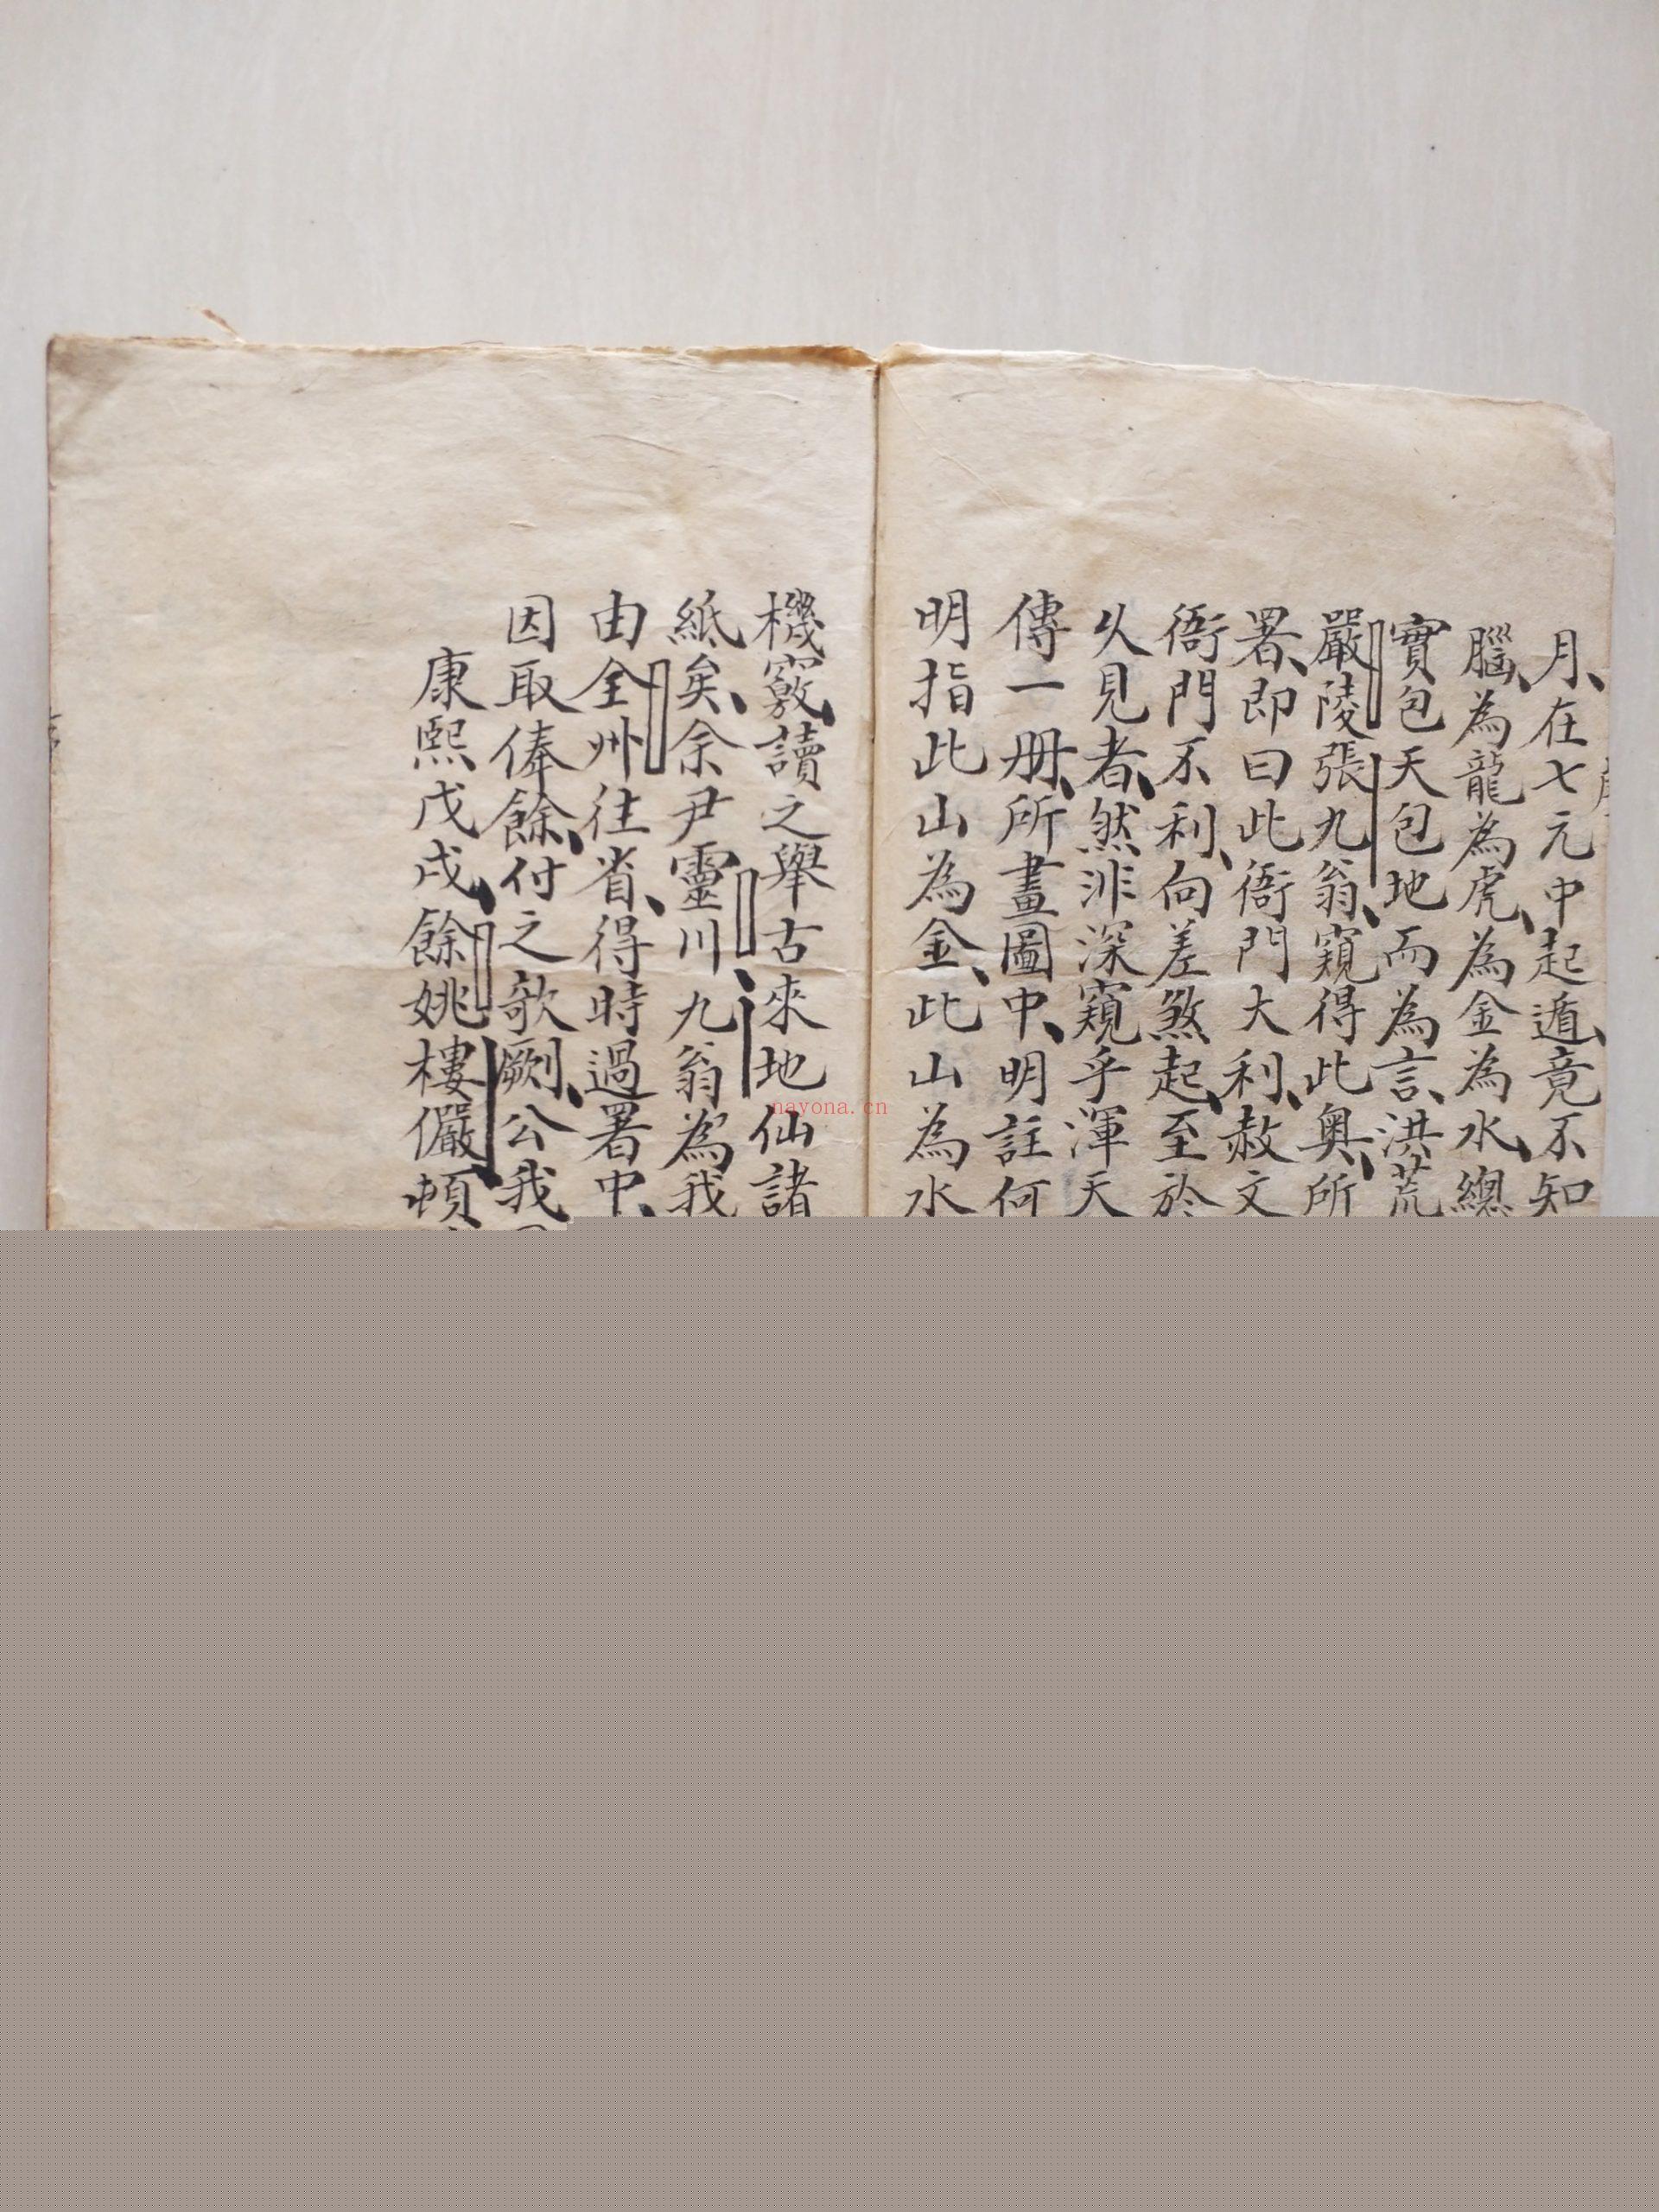 月、在七元中起遁、竟不知
腦、為龍為虎、為金為水、總
實包天包地而為言、洪荒
嚴陵張九翁、窺得此奧、所
署、即曰此衙門大利、赦文
衙門不利、向差煞起、至於
乆見者、然非深窺乎渾天
傳一册、所畫圖中、明註何
明指此山為金、此山為水
機竅、讀之舉古來地仙諸
紙矣、余尹靈川九翁為我
由全州往省、得時過署中、
因取俸餘、付之欹劂、公我
康熙戊戌、餘姚樓儼頓
nayona.cn